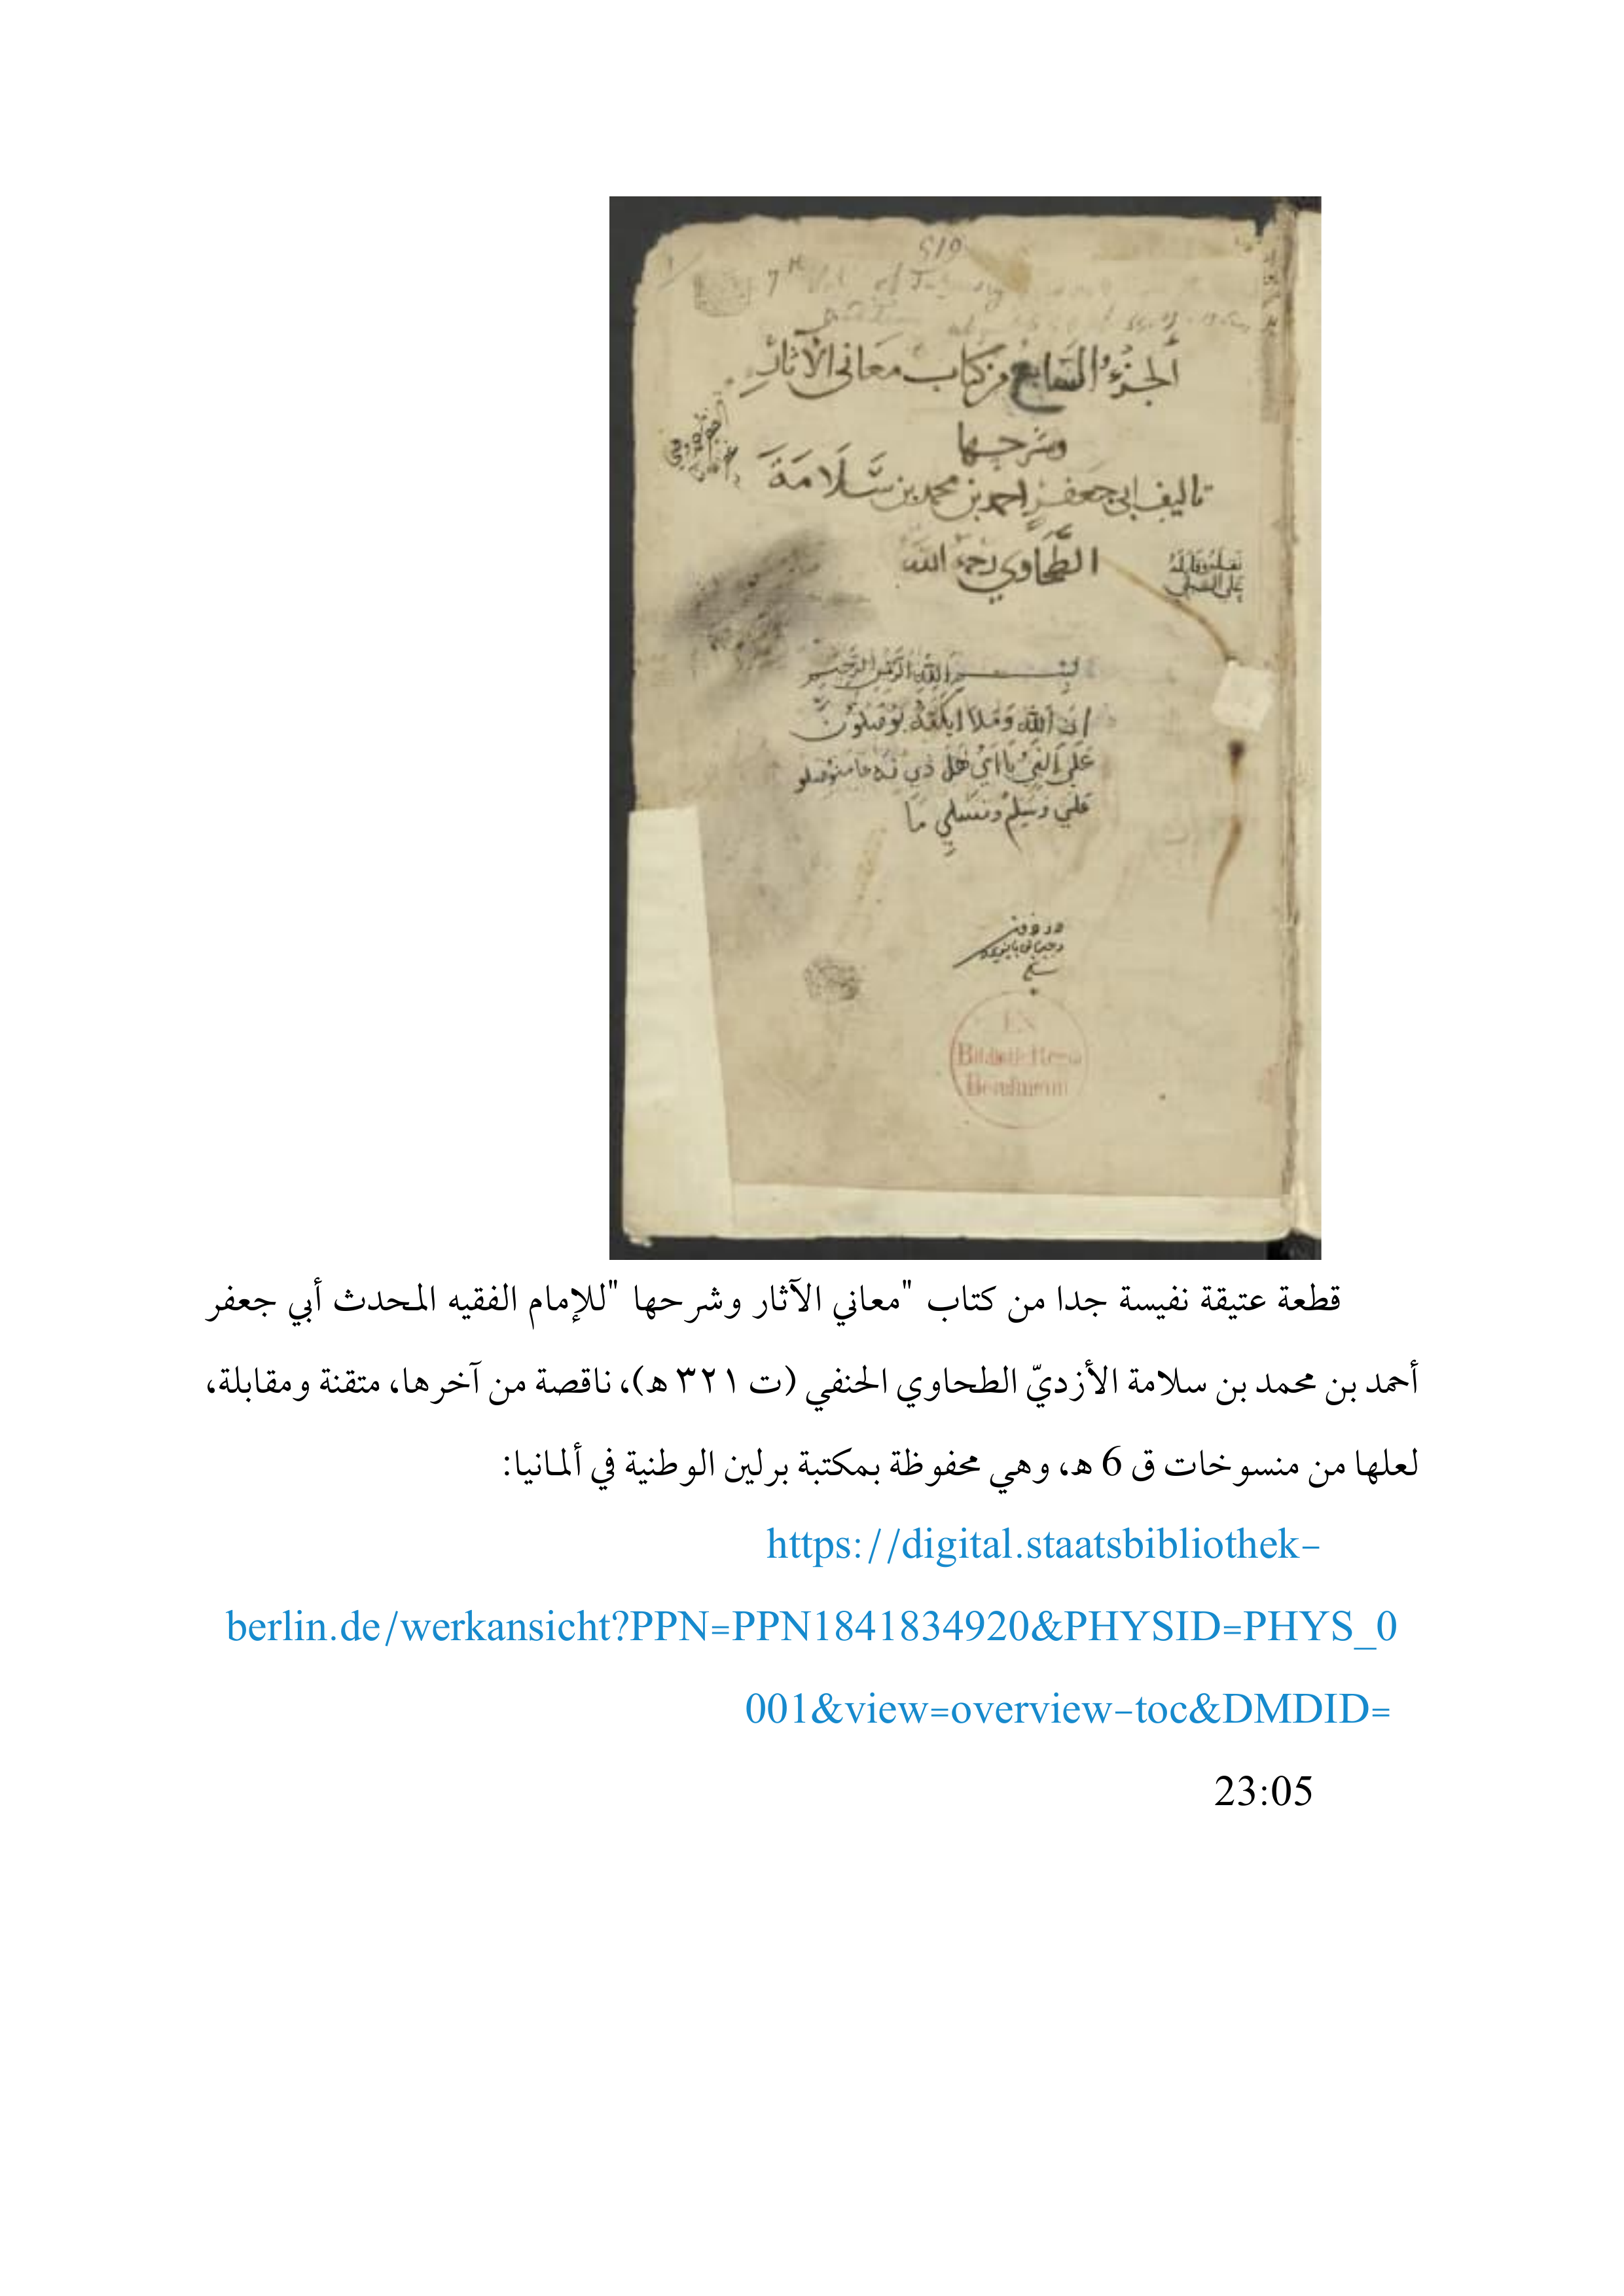 519
7th Vol. of
ألجزءُ السَّابع من كتاب معاني الآثارِ
وشرحها
تاليف ابي جعفرٍ احمد بن محمد بن سَّلَامَةَ
الطَّحَاوي رحمهُ اللهُ
بسم الله الرحمن الرحيم
ان الله وملاايكته يوصلون
علي النبي ياايُ هل ذي نه ءامنو صلو
علي وسلم وتسلي ما
EX
Biblioth. Regia
Berolinensi
قطعة عتيقة نفيسة جدا من كتاب "معاني الآثار وشرحها "للإمام الفقيه المحدث أبي جعفر
أحمد بن محمد بن سلامة الأزديّ الطحاوي الحنفي (ت ٣٢١ هـ)، ناقصة من آخرها، متقنة ومقابلة،
لعلها من منسوخات ق 6 هـ، وهي محفوظة بمكتبة برلين الوطنية في ألمانيا:
https://digital.staatsbibliothek-
berlin.de/werkansicht?PPN=PPN1841834920&PHYSID=PHYS_0
001&view=overview-toc&DMDID=
23:05